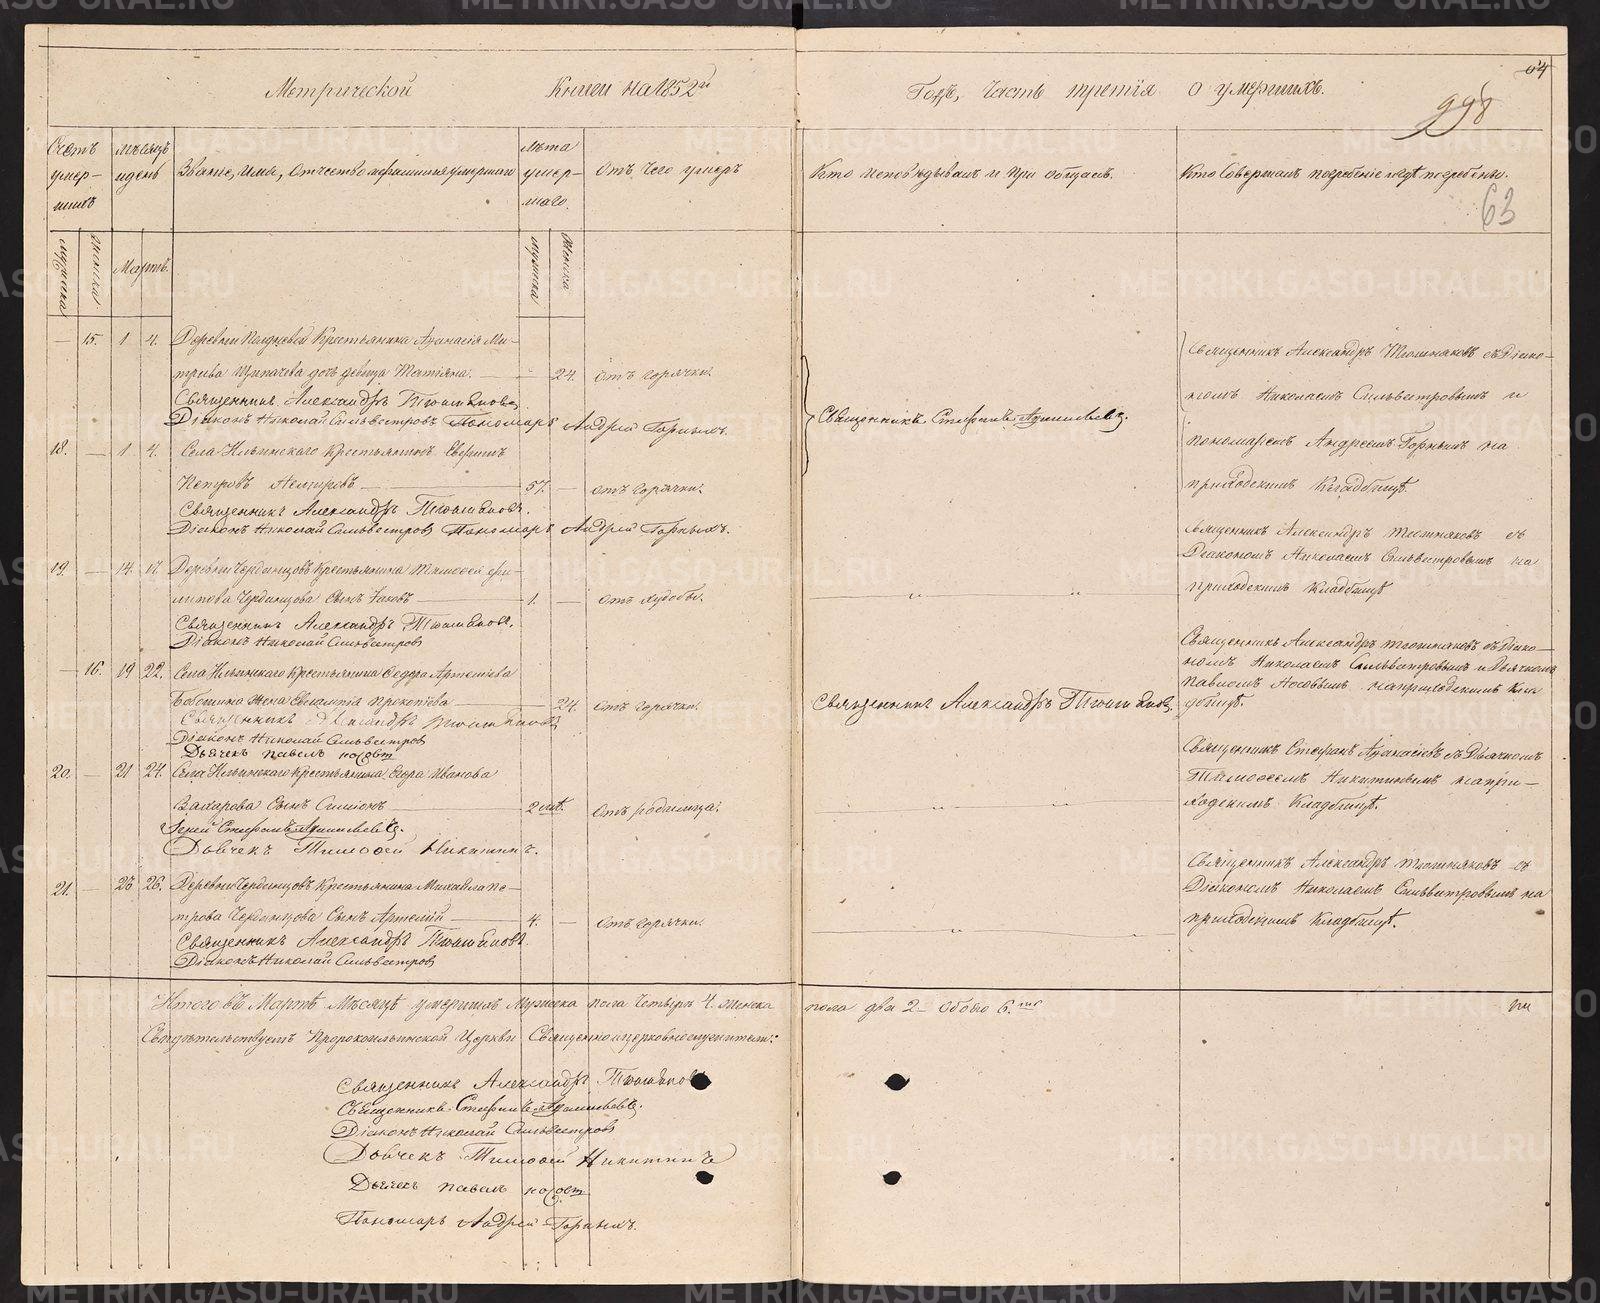 Метрической Книги на 1852й
Годъ, Часть третія о умершихъ.
64
998
63
Счетъ умер-шихъ
Мѣсяцъ и день
Званіе, имя, отчество и фамилія умершаго
Лѣта умер-шаго.
Отъ чего умеръ
Кто исповѣдывалъ и пріобщалъ.
Кто совершалъ погребеніе и гдѣ погребены.
Мужеска
Женска
Мартъ.
Мужеска
Женска
— 15. 1 4. Деревни Крестьянина Аѳанасія Ми-
трева дочь девица Татіяна. — 24. отъ горячки.
Священникъ Александръ Тюшняковъ
Діаконъ Николай Сильвестровъ Пономарь Андрей Горныхъ.
Священникъ Стефанъ Аѳанасьевъ.
Священникъ Александръ Тюшняковъ съ Діако-
номъ Николаемъ Сильвестровымъ и
пономаремъ Андреемъ Горныхъ на
приходскомъ Кладбищѣ.
18. — 1 4. Села Ильинскаго Крестьянинъ
Петровъ 57. — отъ горячки.
Священникъ Александръ Тюшняковъ.
Діаконъ Николай Сильвестровъ Пономарь Андрей Горныхъ.
19. — 14 17. Деревни Чердынцовъ Крестьянина Тимоѳея Фи-
липова Чердынцова сынъ Іаковъ 1. — отъ худобы.
Священникъ Александръ Тюшняковъ.
Діаконъ Николай Сильвестровъ
Священникъ Александръ Тюшняковъ съ
Діакономъ Николаемъ Сильвестровымъ на
приходскомъ Кладбищѣ
— 16. 19 22. Села Ильинскаго Крестьянина Ѳедора Артемьева
жена Евлампія Прокопіева — 24. отъ горячки.
Священникъ Александръ Тюшняковъ
Діаконъ Николай Сильвестровъ
Дьячекъ Павелъ Носовъ
Священникъ Александръ Тюшняковъ.
Священникъ Александръ Тюшняковъ съ Діако-
номъ Николаемъ Сильвестровымъ и Дьячкомъ
Павломъ Носовымъ на приходскомъ Клад-
бищѣ.
20. — 21 24. Села Ильинскаго Крестьянина Егора Иванова
Захарова сынъ Симіонъ 2 отъ родимца.
Іерей Стефанъ Аѳанасьевъ.
Дьячекъ Тимоѳей Никитинъ.
Священникъ Стефанъ Аѳанасьевъ съ Дьячкомъ
Тимоѳеемъ Никитинымъ на при-
ходскомъ Кладбищѣ.
21. — 23 26. Деревни Чердынцовъ Крестьянина Михайла Пе-
трова Чердынцова сынъ Артемій 4. — отъ горячки.
Священникъ Александръ Тюшняковъ
Діаконъ Николай Сильвестровъ
Священникъ Александръ Тюшняковъ съ
Діакономъ Николаемъ Сильвестровымъ на
приходскомъ Кладбищѣ.
Итого въ Мартѣ Мѣсяцѣ умершихъ Мужеска пола четыре 4. женска
пола два 2 — обоего 6.
Свидѣтельствуемъ Пророкоильинской Церкви Священноицерковнослужители:
Священникъ Александръ Тюшняковъ
Священникъ Стефанъ Аѳанасьевъ.
Діаконъ Николай Сильвестровъ
Дьячекъ Тимоѳей Никитинъ
Дьячекъ Павелъ Носовъ
Пономарь Андрей Горныхъ.
METRIKI.GASO-URAL.RU